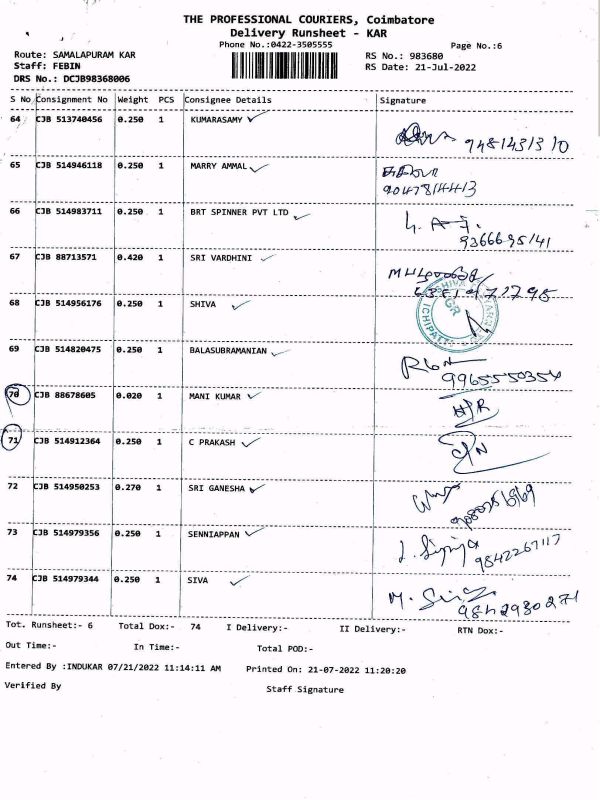 THE PROFESSIONAL COURIERS, Coimbatore
Delivery Runsheet - KAR
Phone No.:0422-3505555
Page No.:6
Route: SAMALAPURAM KAR
RS No.: 983680
Staff: FEBIN
RS Date: 21-Jul-2022
DRS No.: DCJB98368006
S No Consignment No Weight PCS Consignee Details Signature
64 CJB 513740456 0.250 1 KUMARASAMY
9481431310
65 CJB 514946118 0.250 1 MARRY AMMAL
9047814413
66 CJB 514983711 0.250 1 BRT SPINNER PVT LTD
9366695141
67 CJB 88713571 0.420 1 SRI VARDHINI
68 CJB 514956176 0.250 1 SHIVA
69 CJB 514820475 0.250 1 BALASUBRAMANIAN
9965550354
70 CJB 88678605 0.020 1 MANI KUMAR
H/R
71 CJB 514912364 0.250 1 C PRAKASH
72 CJB 514950253 0.270 1 SRI GANESHA
73 CJB 514979356 0.250 1 SENNIAPPAN
9842267117
74 CJB 514979344 0.250 1 SIVA
9842930271
Tot. Runsheet:- 6 Total Dox:- 74 I Delivery:- II Delivery:- RTN Dox:-
Out Time:- In Time:- Total POD:-
Entered By :INDUKAR 07/21/2022 11:14:11 AM Printed On: 21-07-2022 11:20:20
Verified By Staff Signature